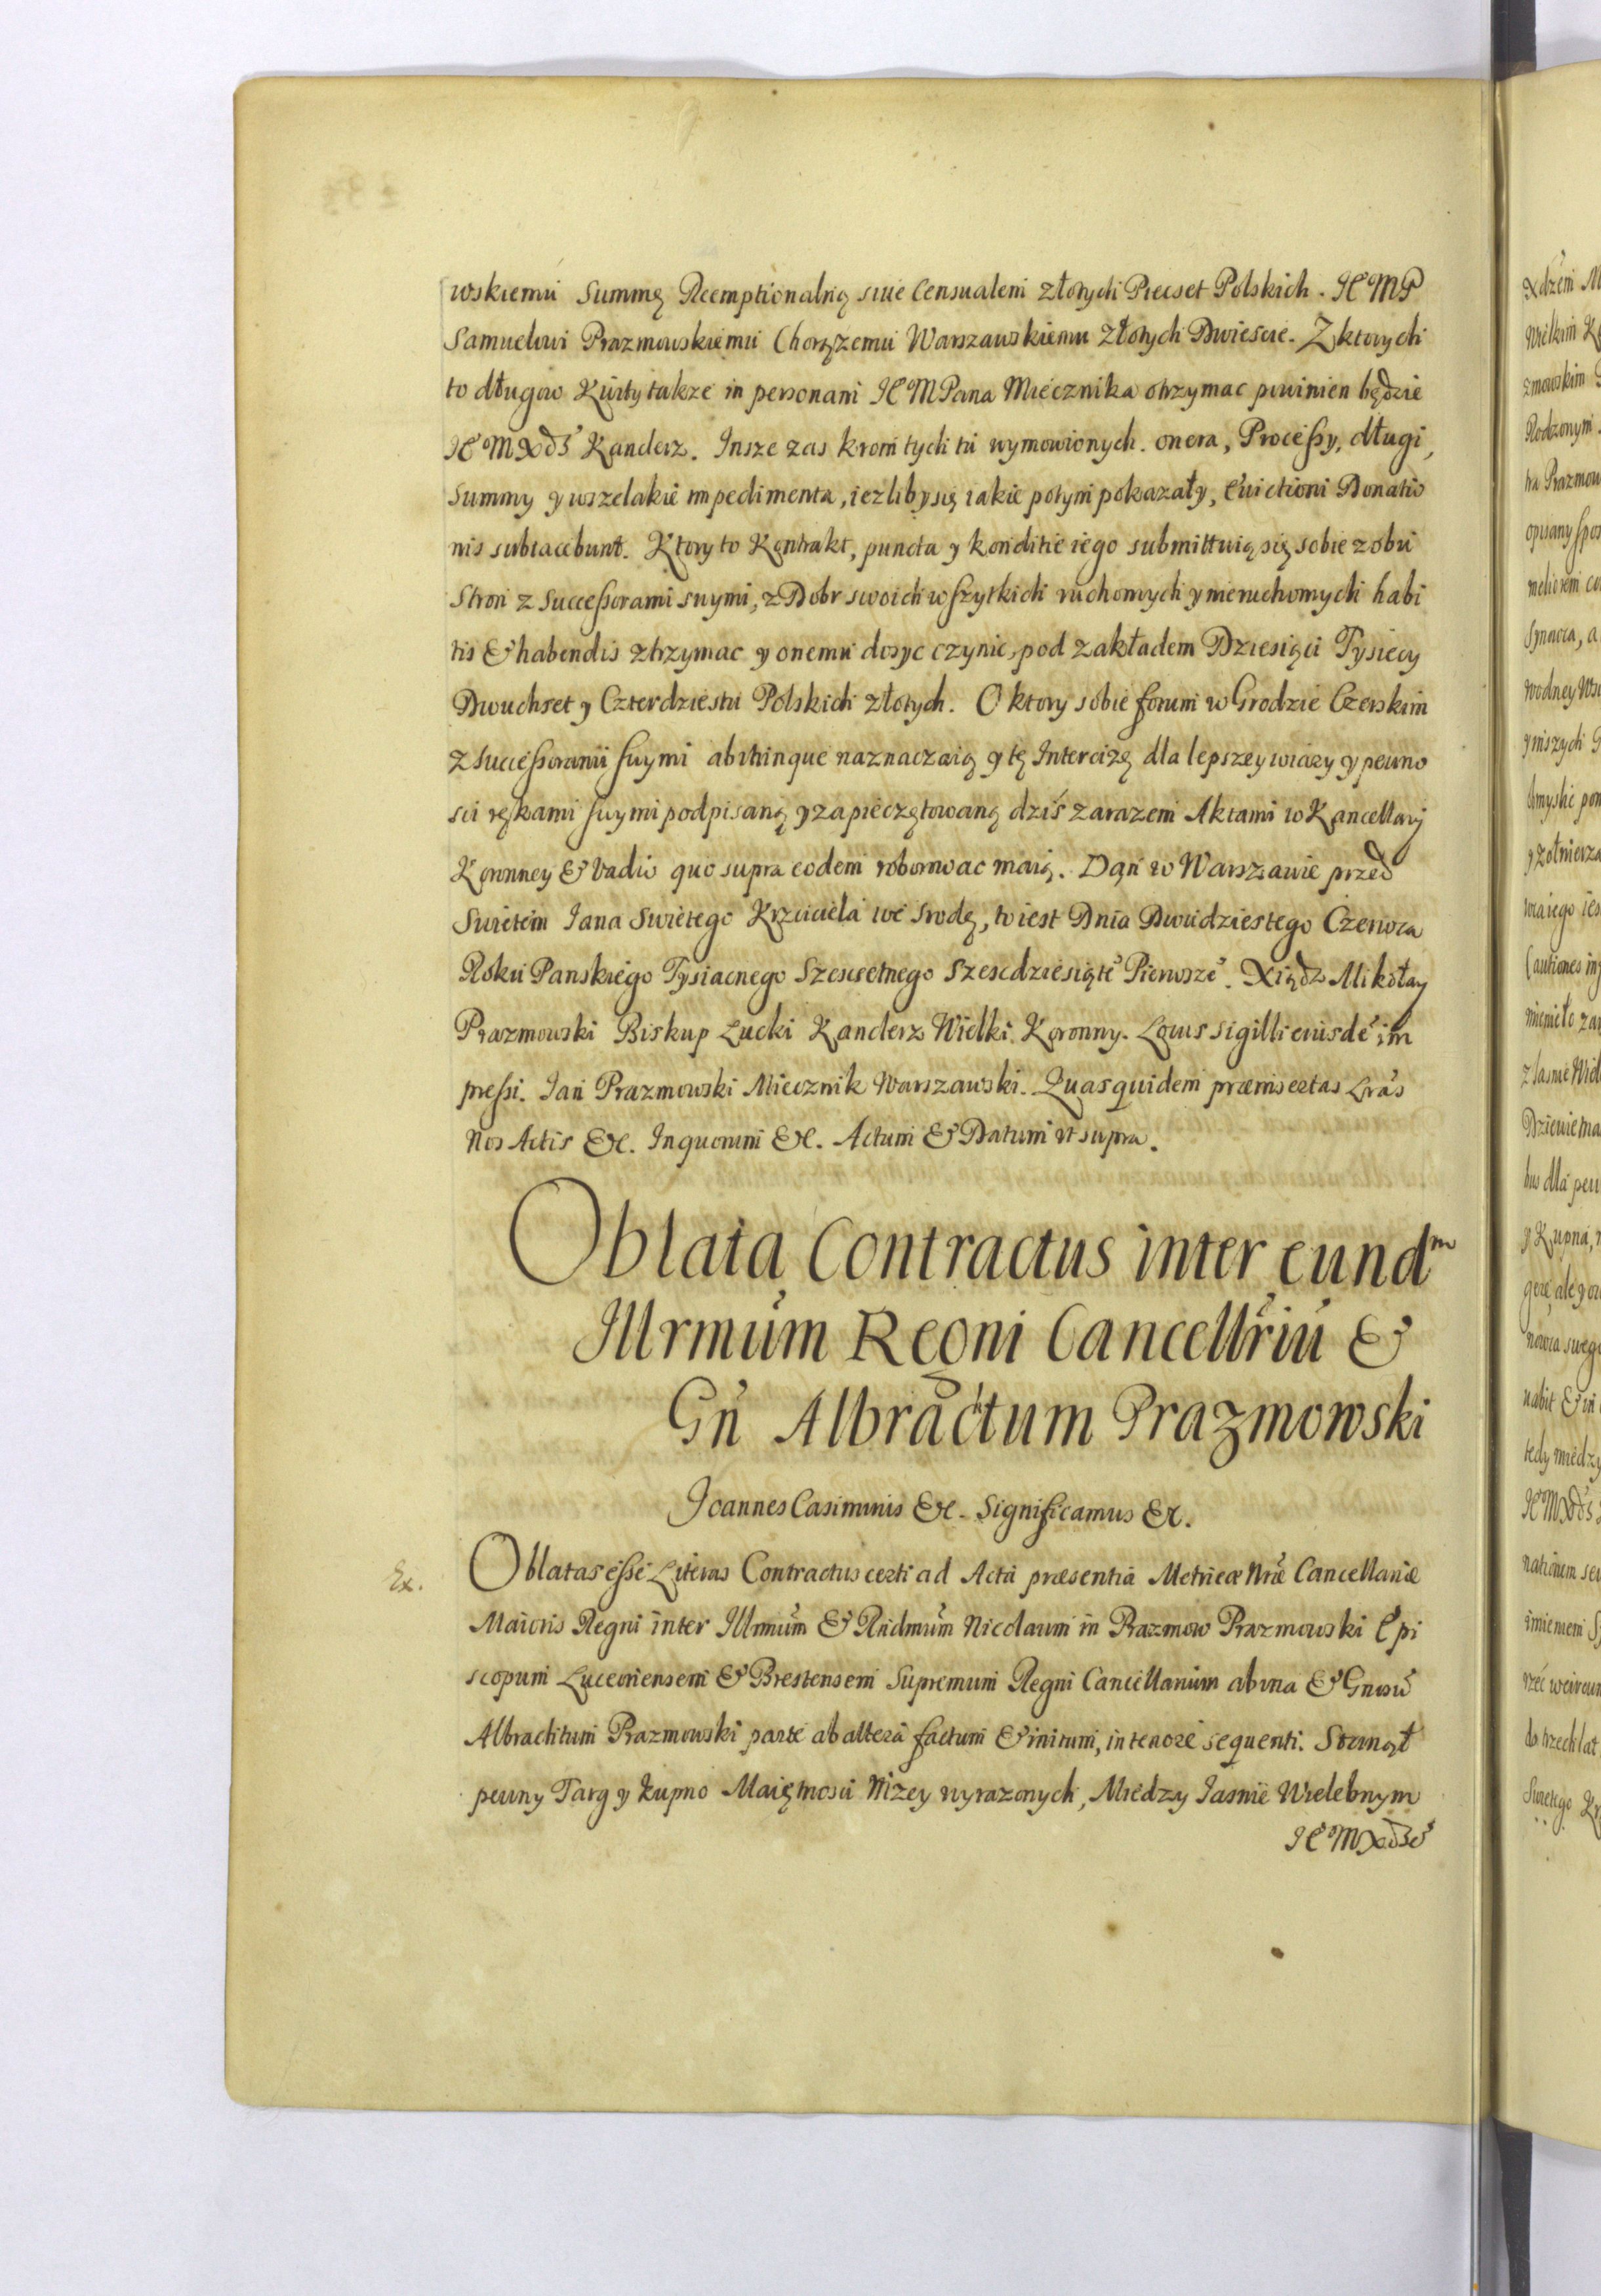 wskiemu Summę Reemptionalną siue Censualem złotych Piecset Polskich. JE͠MP
Samuelowi Prazmowskiemu Chorązemu Warszawskiemu złotych Dwiescie. Z ktorych
to długow Kwity takze in personam JE͠MPana Miecznika otrzymac powinien będzie
JE͠MXdz Kanclerz. Insze zas krom tych tu wymowionych. onera, Processy, długi,
Summy y wszelakie impedimenta, iezliby się iakie potym pokazały, Euictioni Donatio
nis subiacebunt. Ktory to Kontrakt, puncta y konditie iego submittuią się sobie z obu
Stron z Successorami swymi, z Dobr swoich wszytkich ruchomych y nieruchomych habi
tis & habendis ztrzymac y onemu dosyc czynic, pod zakładem Dziesięci Tysięcy
Dwuchset y Czterdziestu Polskich złotych. O ktory sobie forum w Grodzie Czerskim
z Successorami swymi abutrinque naznaczaią y tę Intercizę dla lepszey wiary y pewno
sci rękami swymi podpisaną y zapieczętowaną dziś zarazem Aktami w Kancellaryi
Koronney & Vadio quo supra eodem roborowac maią. Dan w Warszawie przed
Swietem Jana Swietego Krzciciela we srodę, to iest Dnia Dwudziestego Czerwca
Roku Panskiego Tysiacnego Szescsetnego Szescdziesiąte͠ Pierwsze͠. Xiądz Mikołay
Prazmowski Biskup Łucki Kanclerz Wielki Koronny. Locus sigilli eiusde͠ im
pressi. Jan Prazmowski Miecznik Warszawski. Quas quidem præinsertas Lr͠as
Nos Actis &c. In quorum &c. Actum & Datum ut supra.
Oblata Contractus inter eundᵐ
Illrmu͠m Regni Cancellr͠iu͠ &
Gn͠ Albrachtum Prazmowski
Joannes Casimirus &c. Significamus &c.
Ex. Oblatas esse Literas Contractus certi ad Acta præsentia Metricæ Nr͠æ Cancellariæ
Maioris Regni inter Illrmu͠m & Rndmu͠m Nicolaum in Prazmow Prazmowski Epi
scopum Luceoriensem & Brestensem Supremum Regni Cancellarium ab una & Gnosu͠
Albrachtum Prazmowski parte ab altera factum & initum, in tenore sequenti. Stanął
pewny Targ y kupno Maiętnosci Nizey wyrazonych, Miedzy Jasnie Wielebnym
JE͠MXdze͠